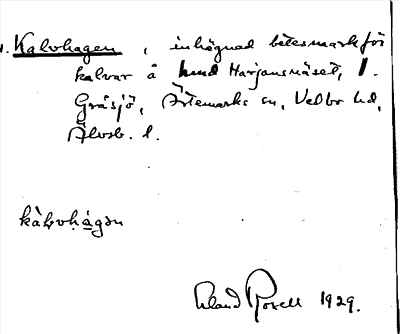 1. Kalvhagen, inhägnad betesmark för
kalvar å hmd Harjansnäset, 1.
Gråsjö, Ärtemarks sn, Vedbo hd,
Älvsb. l.
kàlvhágən
Erland Rosell 1929.